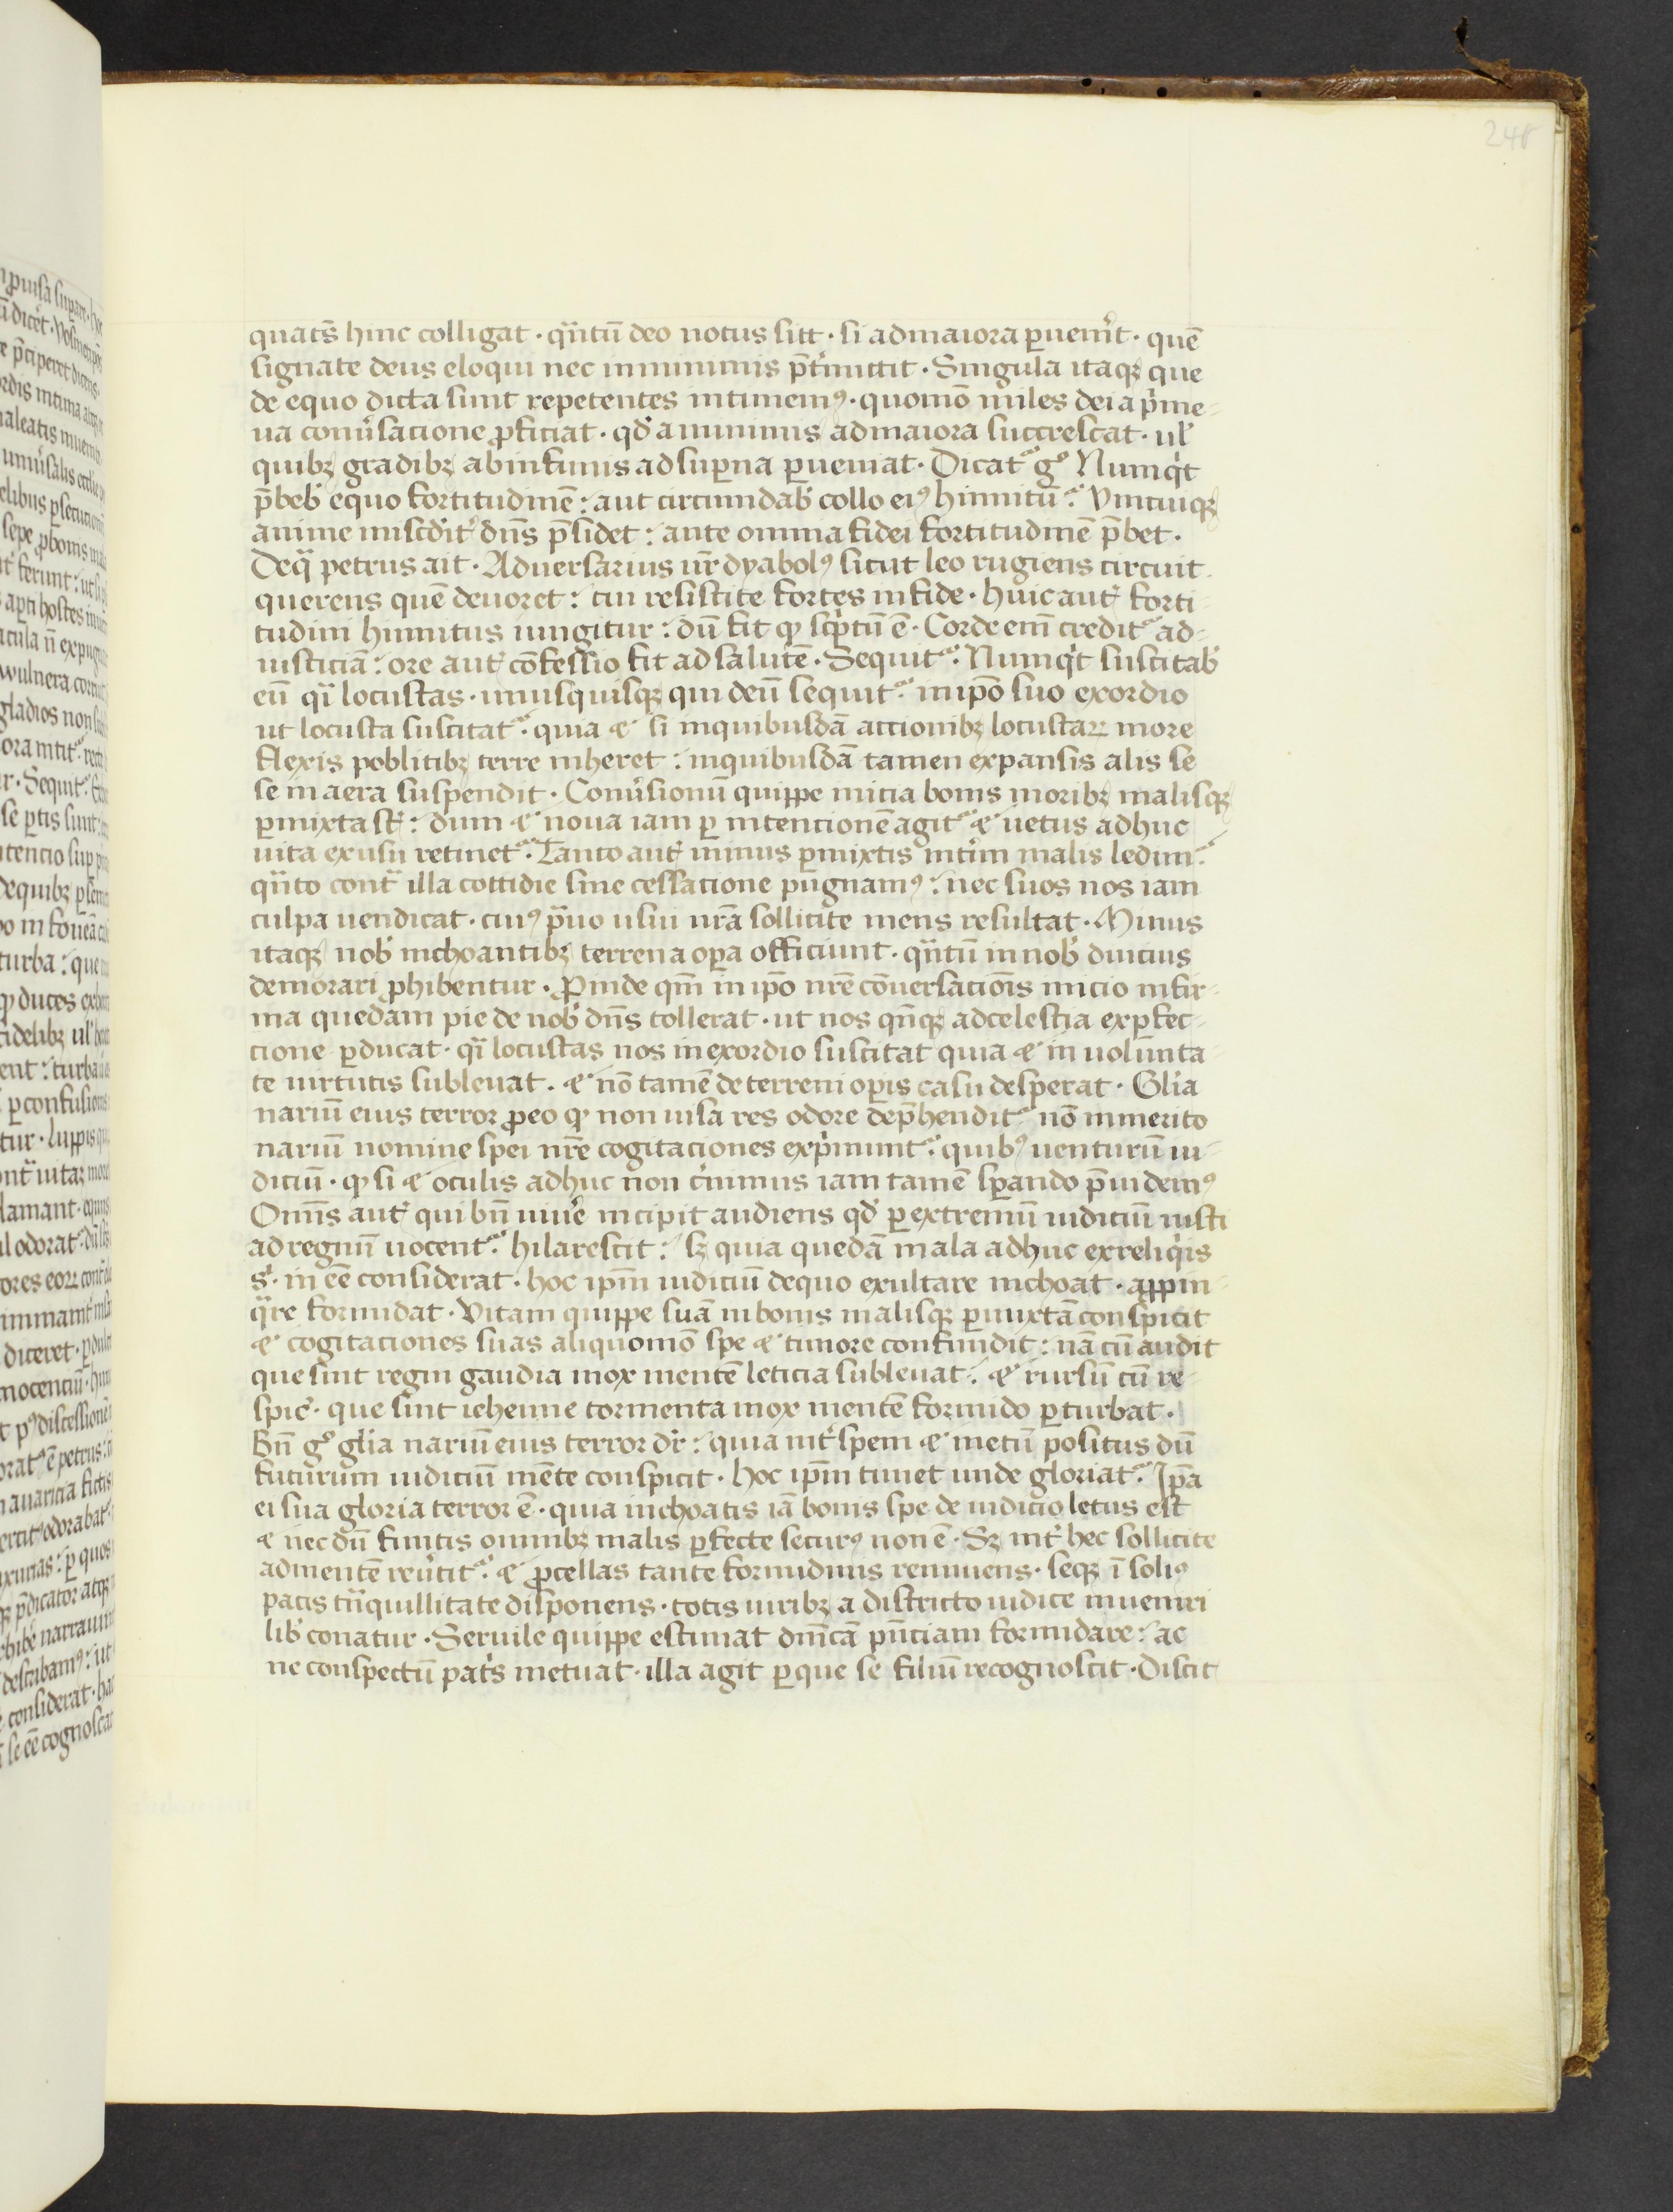 248
quatꝰ hinc colligat · qͣntū deo notus sitt · si ad maiora ꝑuen̄it · quē
signate deus eloqui nec in minimis p̄t̉mittit · Singula itaqꝫ que
de equo dicta sunt repetentes intimemꝰ · quomō miles dei a pͥme-
ua conũsacione ꝓficiat · qđ a minimis ad maiora succrescat · ul̉
quibꝫ gradibꝫ ab infimis ad suꝑna ꝑueniat · Dicat᷑ gͦ Numqͥt
p̄beb̉ equo fortitudinē : aut circumdab̉ collo eiꝰ hinnitū · Vnicuiqꝫ
anime misc̉dit̉ dn̄s p̄sidet : ante omnia fidei fortitudinē p̄bet ·
Deqͣ petrus ait · Aduersarius ur̄ dyabolꝰ sicut leo rugiens circuit
querens quē deuoret : cui resistite fortes in fide · Huic aut̉ forti-
tudini hinnitus iungitur : dū fit qꝫ sc̉ptū ē · Corde eni̅ credit᷑ ad-
iusticiā : ore aut̉ cōfessio fit ad salutē · Sequit᷑ · Numqͥt suscitab̉
eū qͣi locustas · unusquisqꝫ qui deū sequit᷑ · in ipō suo exordio
ut locusta suscitat᷑ · quia ⁊ si in quibusdā accionibꝫ locustaꝝ more
flexis poblitibꝫ terre inheret : in quibusdā tamen expansis alis se
se in aera suspendit · Conũsionū quippe inicia bonis moribꝫ malisqꝫ
ꝑmixta st̉ : dum ⁊ noua iam ꝑ intencionē agit᷑ ⁊ uetus adhuc
uita ex usu retinet᷑ · Tanto aut̉ minus ꝑmixtis int̉im malis ledim᷑
qͣnto contͣ illa cottidie sine cessacione pugnamꝰ : nec suos nos iam
culpa uendicat · cuiꝰ pͣuo usui nr̄a sollicite mens resultat · Minus
itaqꝫ nob̉ inchoantibꝫ terrena oꝑa officiunt · qͣntū in nob̉ diucius
demorari ꝓhibentur · Ꝓinde qm̄ in ipō nr̄e cōuersaciōis inicio infir-
ma quedam pie de nob̉ dn̄s tollerat · ut nos qn̄qꝫ ad celestia ex ꝑfec-
cione ꝑducat · qͣi locustas nos in exordio suscitat quia ⁊ in uolunta-
te uirtutis subleuat · ⁊ nō tamē de terreni oꝑis casu desperat · Gl̉ia
nariū eius terror ꝓ eo qꝫ non uisa res odore dep̄hendit᷑ nō inmerito
nariū nomine spei nr̄e cogitaciones expͥmunt᷑ · quibꝰ uenturū iu-
diciū · qꝫ si ⁊ oculis adhuc non c̉nimus iam tamē sꝑando p̄uidemꝰ
Omn̄s aut̉ qui bn̄ uiu̓e incipit audiens qđ ꝑ extremū iudiciū iusti
ad regnū uocent᷑ · hilarescit : sꝫ quia quedā mala adhuc ex reliqͥis
s̉ · in eē considerat · hoc ipm̄ iudiciū de quo exultare inchoat · appin-
qͣre formidat · Vitam quippe suā in bonis malisqꝫ ꝑmixtā conspicit
⁊ cogitaciones suas aliquomō spe ⁊ timore confundit : nā cū audit
que sint regni gaudia mox mentē leticia subleuat : ⁊ rursū cū re-
spic̉ · que sint iehenne tormenta mox mentē formido ꝑturbat ·
Bn̄ gͦ gl̉ia nariū eius terror dr̄ : quia int̉ spem ⁊ metū positus dū
futurum iudiciū mēte conspicit · hoc ipm̄ timet unde gloriat᷑ · Ip̄a
ei sua gloria terror ē · quia inchoatis iā bonis spe de iudicio letus est
⁊ nec dū finitis omnibꝫ malis ꝑfecte securꝰ non ē · Sꝫ int̉ hec sollicite
ad mentē reũtit᷑ · ⁊ ꝓcellas tante formidinis renuens · seqꝫ ī soliꝰ
pacis tͣnquillitate disponens · totis uiribꝫ a districto iudice inueniri
lib̉ conatur · Seruile quippe estimat dnīcā pn̄ciam formidare : ac
ne conspectū patͥs metuat · illa agit ꝑ que se filiū recognoscit · Discit